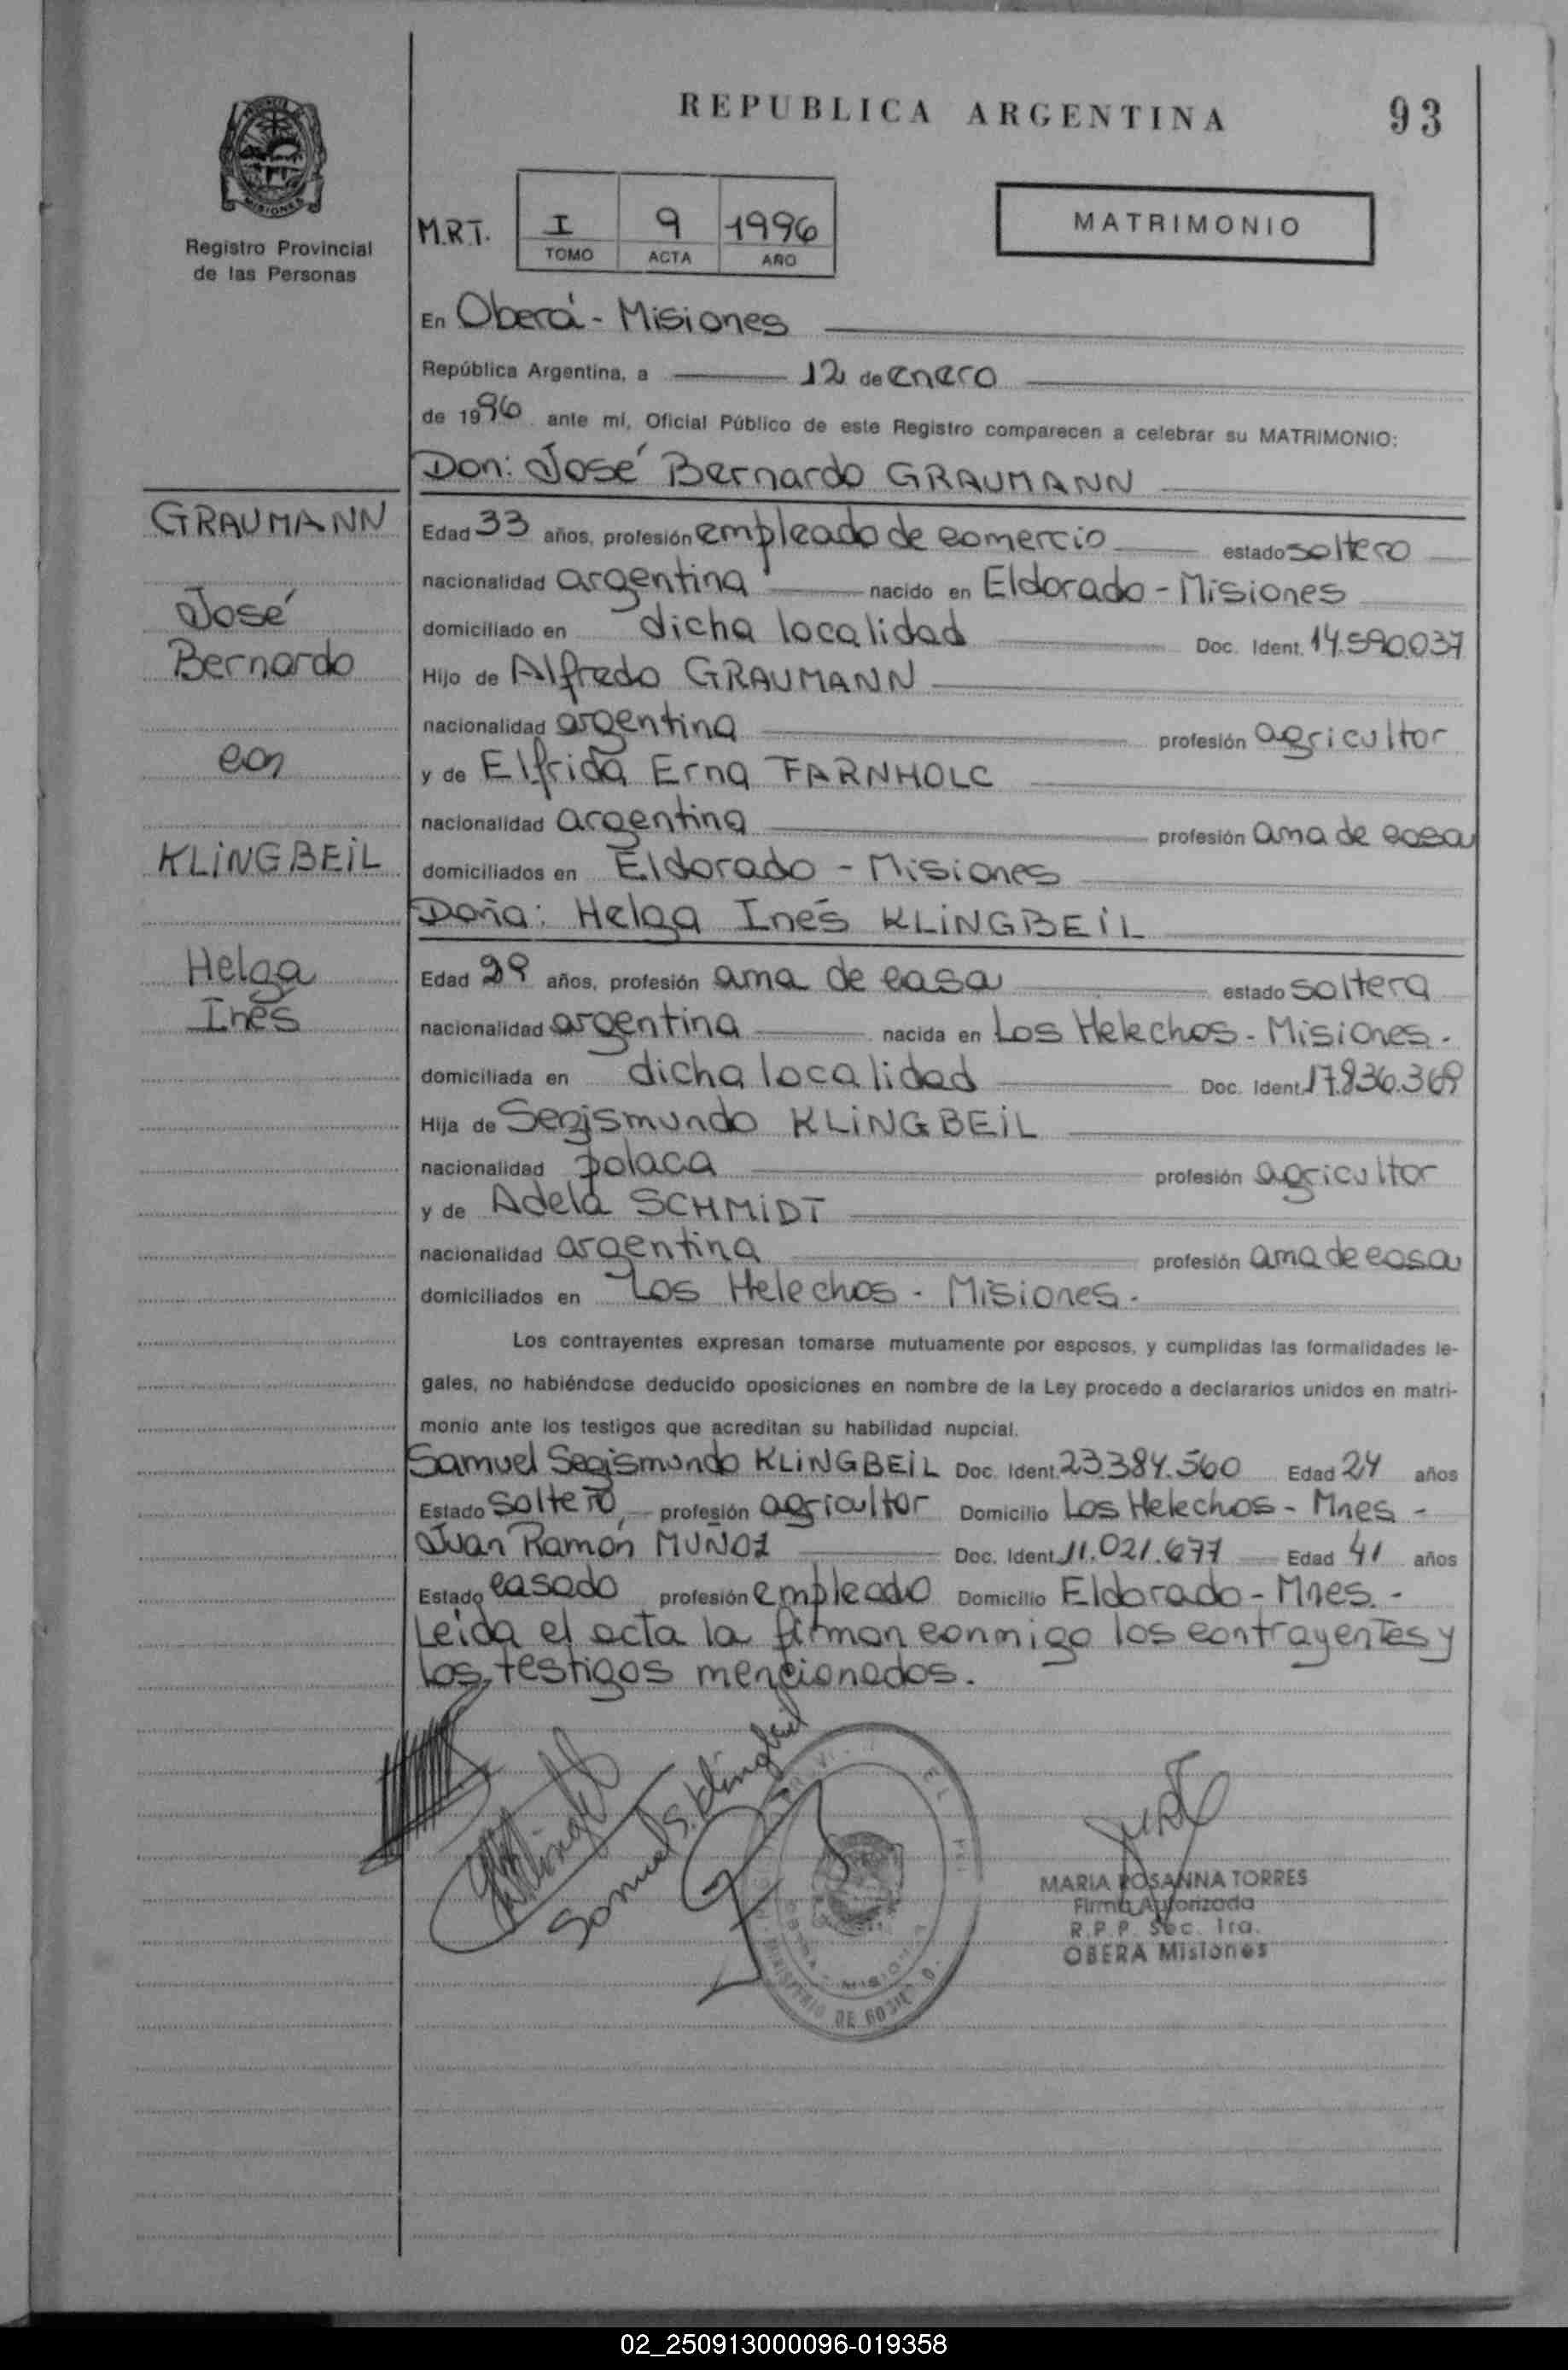 REPUBLICA ARGENTINA
93
MISIONES
Registro Provincial
de las Personas
M.R.T.
I 9 1996
TOMO ACTA AÑO
MATRIMONIO
En Oberá - Misiones
República Argentina, a 12 de enero
de 1996 ante mí, Oficial Público de este Registro comparecen a celebrar su MATRIMONIO:
Don: José Bernardo GRAUMANN
GRAUMANN
José
Bernardo
con
KLiNGBEiL
Helga
Inés
Edad 33 años, profesión empleado de comercio estado soltero
nacionalidad argentina nacido en Eldorado - Misiones
domiciliado en dicha localidad Doc. Ident. 14.590.037
Hijo de Alfredo GRAUMANN
nacionalidad argentina profesión agricultor
y de Elfrida Erna FARNHOLC
nacionalidad argentina profesión ama de casa
domiciliados en Eldorado - Misiones
Doña: Helga Inés KLiNGBEiL
Edad 29 años, profesión ama de casa estado soltera
nacionalidad argentina nacida en Los Helechos - Misiones.
domiciliada en dicha localidad Doc. Ident. 17.836.369
Hija de Segismundo KLiNGBEiL
nacionalidad polaca profesión agricultor
y de Adela SCHMiDT
nacionalidad argentina profesión ama de casa
domiciliados en Los Helechos - Misiones.
Los contrayentes expresan tomarse mutuamente por esposos, y cumplidas las formalidades le-
gales, no habiéndose deducido oposiciones en nombre de la Ley procedo a declararlos unidos en matri-
monio ante los testigos que acreditan su habilidad nupcial.
Samuel Segismundo KLiNGBEiL Doc. Ident. 23.384.560 Edad 24 años
Estado soltero, profesión agricultor Domicilio Los Helechos - Mnes -
Juan Ramón MUÑOZ Doc. Ident. 11.021.677 Edad 41 años
Estado casado profesión empleado Domicilio Eldorado - Mnes. -
Leída el acta la firman conmigo los contrayentes y
los testigos mencionados.
Samuel S. Klingbeil
MARIA ROSANNA TORRES
Firma Autorizada
R.P.P. Sec. 1ra.
OBERA Misiones
MINISTERIO DE GOBIERNO
02_250913000096-019358